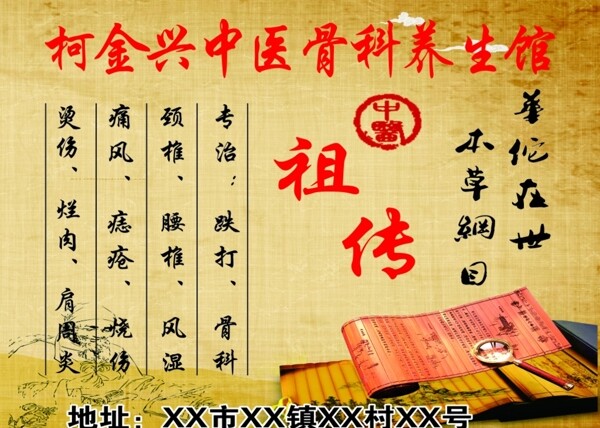 柯金兴中医骨科养生馆
华佗在世
本草綱目
中醫
祖传
专治：跌打、骨科
颈椎、腰椎、风湿
痛风、痣疮、烧伤
烫伤、烂肉、肩周炎
地址：XX市XX镇XX村XX号